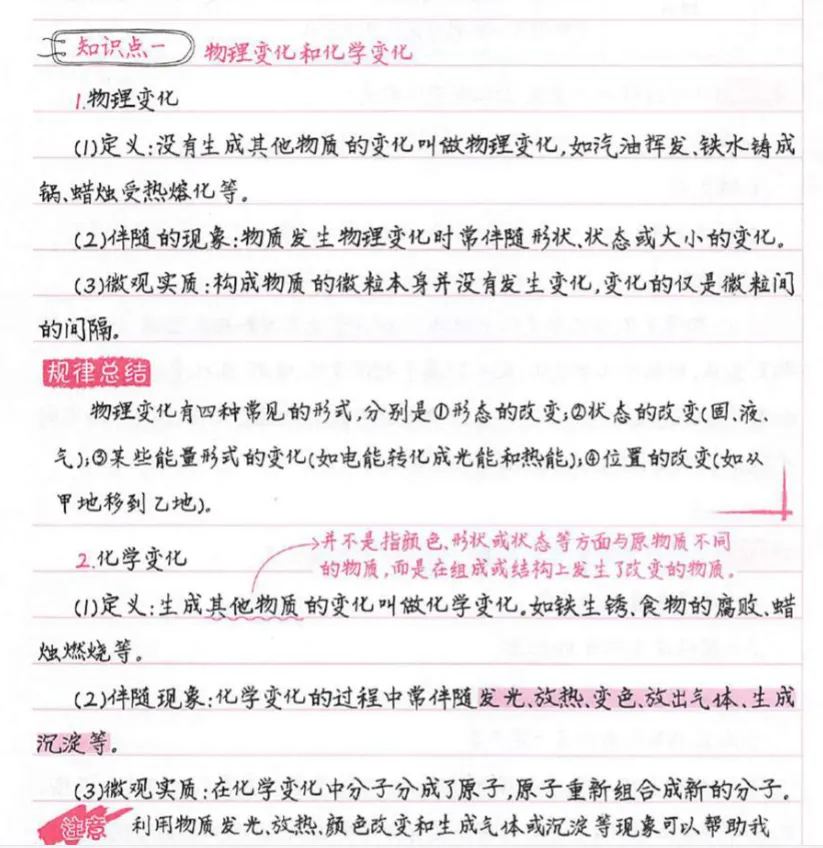 知识点一 物理变化和化学变化
1.物理变化
(1)定义:没有生成其他物质的变化叫做物理变化,如汽油挥发、铁水铸成
锅、蜡烛受热熔化等。
(2)伴随的现象:物质发生物理变化时常伴随形状、状态或大小的变化。
(3)微观实质:构成物质的微粒本身并没有发生变化,变化的仅是微粒间
的间隔。
规律总结
物理变化有四种常见的形式,分别是①形态的改变;②状态的改变(固、液、
气);③某些能量形式的变化(如电能转化成光能和热能);④位置的改变(如从
甲地移到乙地)。
2.化学变化
并不是指颜色、形状或状态等方面与原物质不同
的物质,而是在组成或结构上发生了改变的物质。
(1)定义:生成其他物质的变化叫做化学变化。如铁生锈、食物的腐败、蜡
烛燃烧等。
(2)伴随现象:化学变化的过程中常伴随发光、放热、变色、放出气体、生成
沉淀等。
(3)微观实质:在化学变化中分子分成了原子,原子重新组合成新的分子。
注意 利用物质发光、放热、颜色改变和生成气体或沉淀等现象可以帮助我